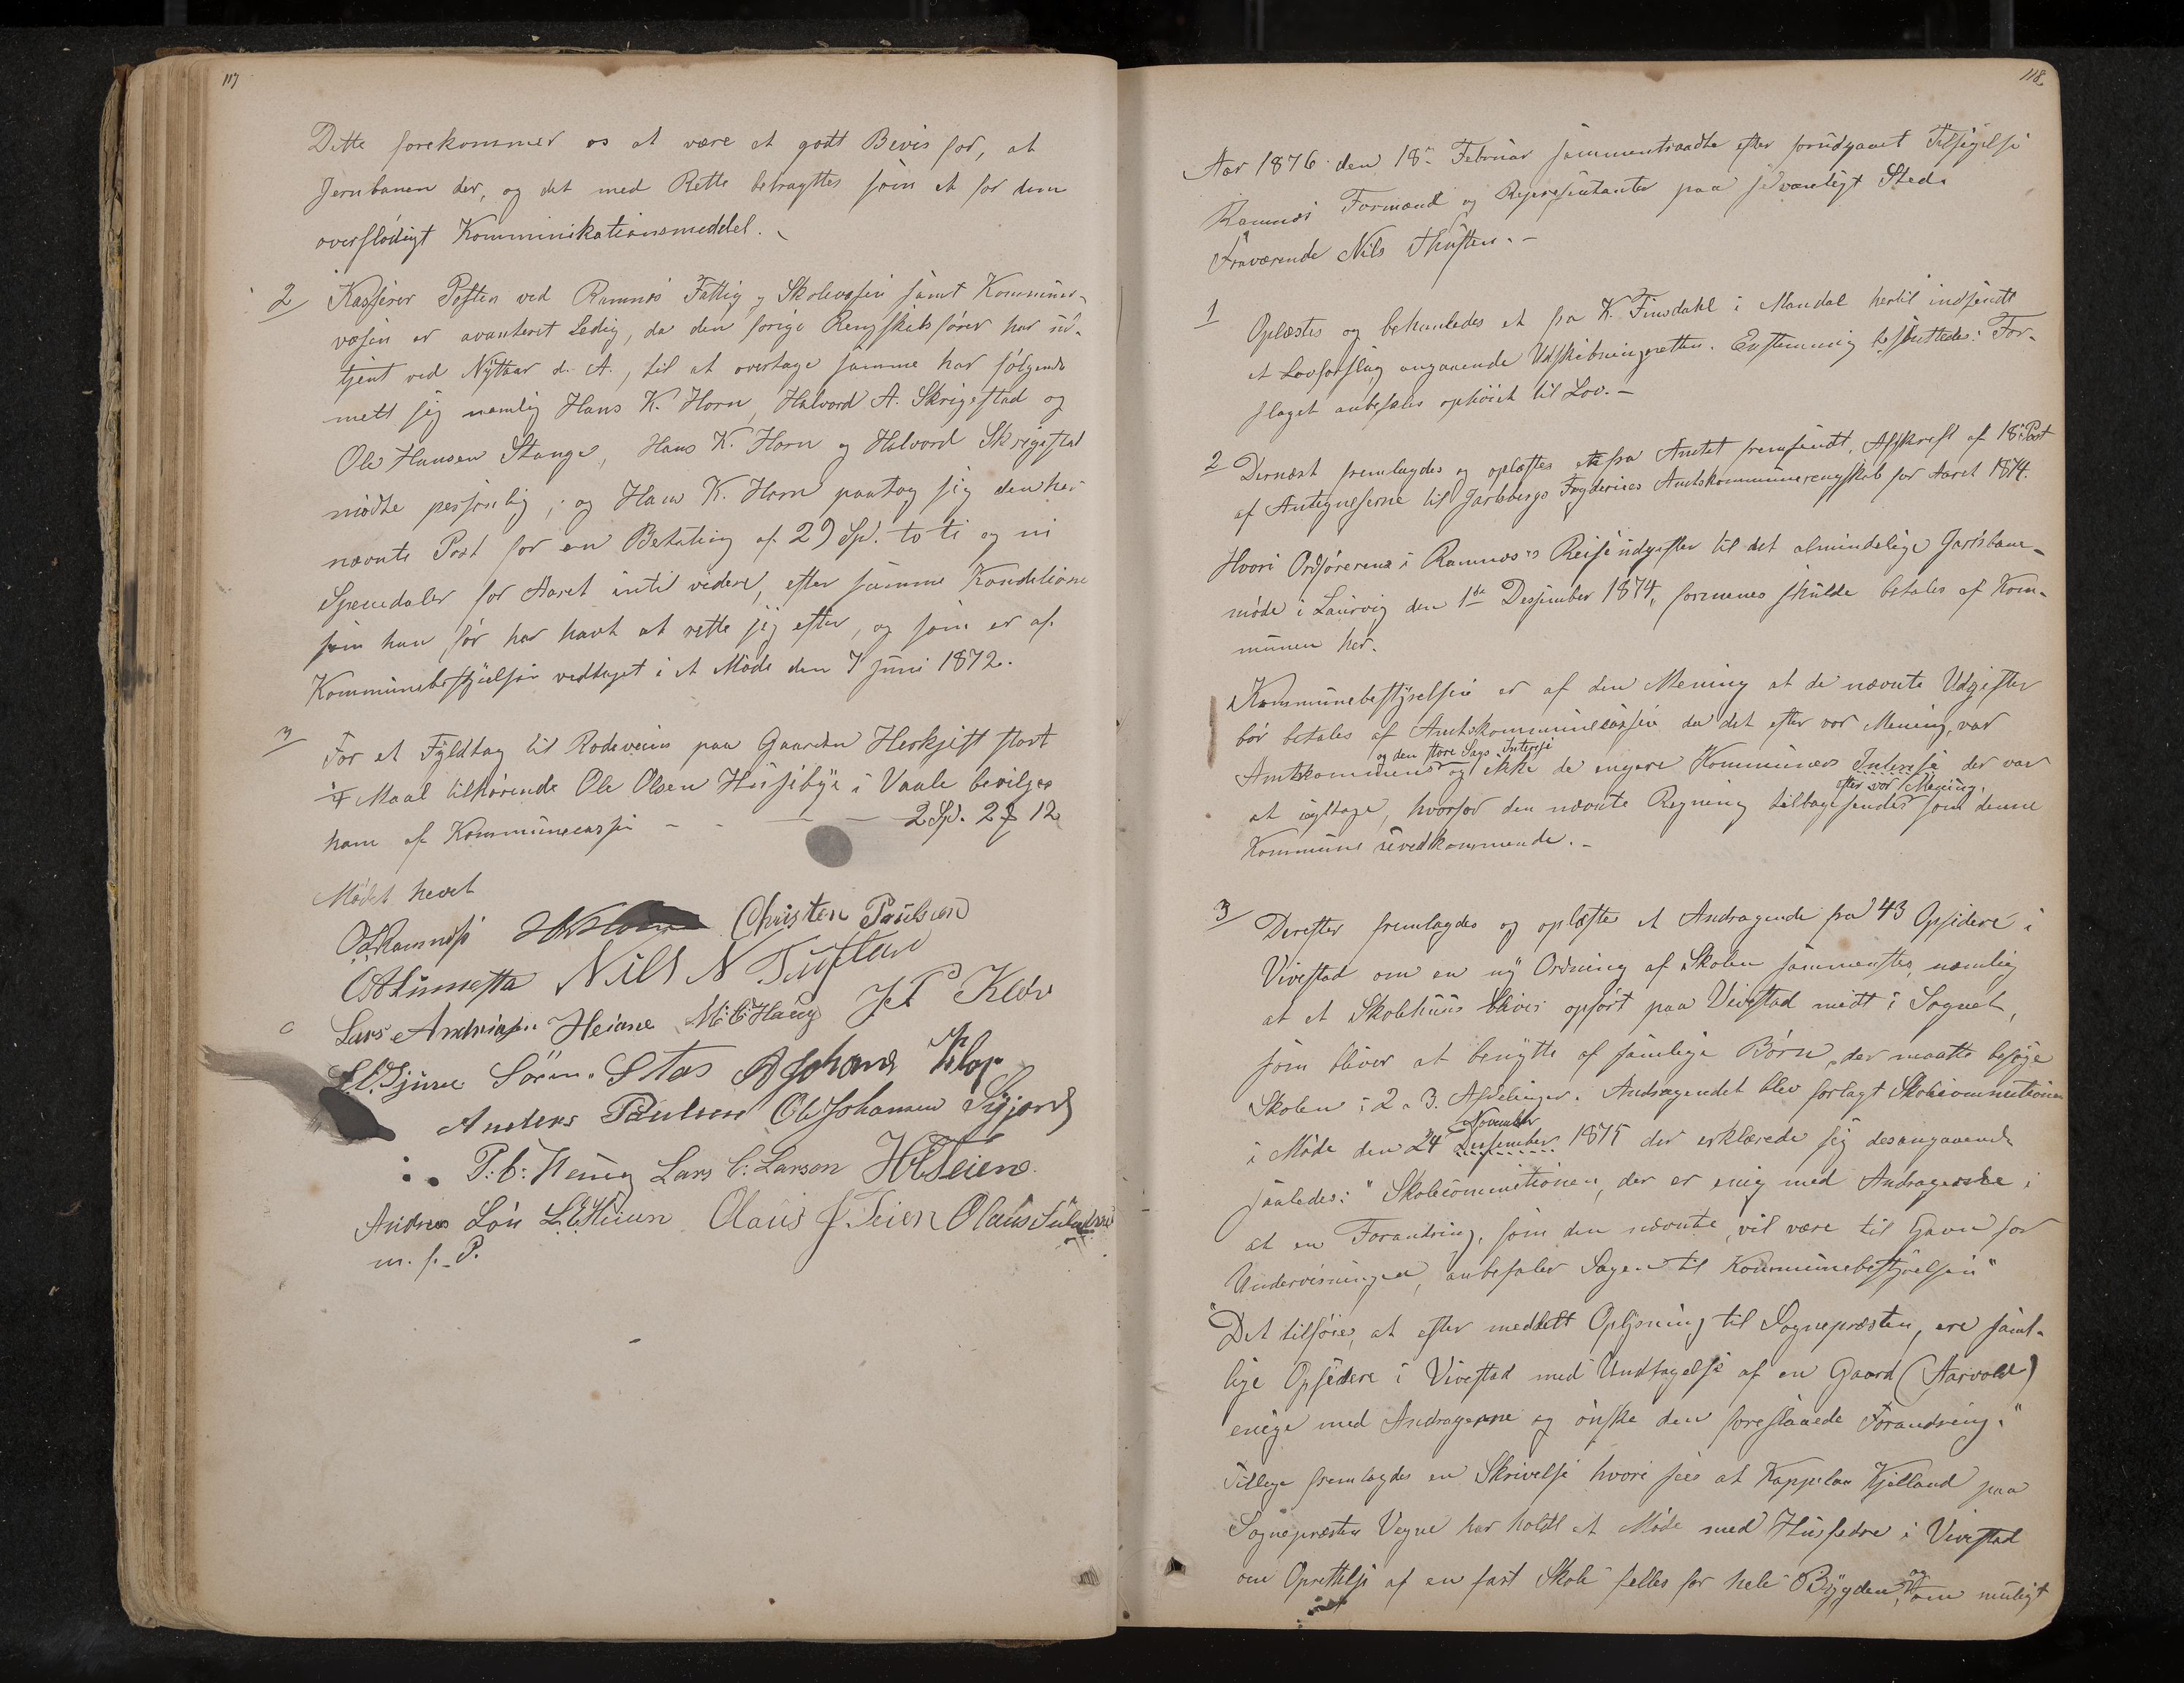 117
Dette forekommer os at være et godt Bevis for, at
Jernbanen der, og det med Rette betragttes som et for dem
overflödigt Kommunikationsmeddel.
2 Kasserer Posten ved Ramnes Fattig og Skolevæsen samt Kommune-
væsen er avanteret Ledig, da den forige Rengskabsförer har ud-
tjent ved Nyttaar d. A., til at overtage samme har fölgende
mett sig nemlig Hans K. Horn, Halvord A. Skrigestad og
Ole Hansen Stange, Hans K. Horn og Halvord Skrigestad
mödte personlig; og Hans K. Horn paatog sig den her
nævnte Post for en Betaling af 29 Spd. to ti og ni
Speciedaler for Aaret intil videre, efter samme Konditione
som han för har havt at rette sig efter, og som er af
Kommunebestyrelsen vedtaget i et Möde den 7 Juni 1872.
3 For et Fyldtag til Rodeveien paa Gaarden Herkjest stort
Maal tilhörende Ole Olsen Husebye i Vaale bevilges
ham af Kommunecassen - - - 2 Spd. 2 12
Mödet hevet
O. Ramnes Christen Paulsen
Nils N Tuften
Lars Andreasen Heiane M. C. Haug J P Klöv
Sören Stas A Johans Klop
Anders Paulsen Ole Johansen
P. C. Lars C. Larson
Andreas Lön Olaus J Seien Olaus
m. f. P.
118
Aar 1876 den 18de Februar sammentraadte efter forudgaaet Tilsigelse
Ramnes Formænd og Representanter paa sedvanligt Sted.
Fraværende Nils Thuften. -
1 Oplæstes og behanledes et fra K. Finsdahl i Mandal hertil indsendt
et Lovforslag angaaende Udskibningsretten. Enstemmig besluttedes: For-
slaget anbefales ophöiet til Lov. -
2 Dernæst fremlagdes og oplæstes et fra Amtet fremsendt, Afskreft af 18de Post
af Antegnelserne til Jarlsbergs Fogderies Amtskommunerengskab for Aaret 1874.
Hvori Ordförerens i Ramnes's Reiseudgifter til det almindelige Jernbane-
möde i Laurvig den 1ste Desember 1874, formenes skulde betales af Kom-
munen her.
Kommunebestyrelsen er af den Mening at de nævnte Udgifter
bör betales af Amtskommunecassen da det efter vor Mening, var
og den store Sags Interesse
Amtskommunens og ikke de engere Kommuners Interesse der var
efter vor Mening,
at iagttage, hvorfor den nævnte Regning tilbagesendes som denne
Kommune uvedkommende. -
3 Derefter fremlagdes og oplæstes et Andragende fra 43 Opsidere i
Vivestad om en ny Ordning af Skolen sammesteds, nemlig
at et Skolehuus blives opfört paa Vivestad midt i Sognet,
som bliver at benytte af samlige Börn der maatte besöge
Skolen i 2 a 3. Afdelinger. Andragendet blev forlagt Skolecommitionen
November
i Möde den 24 Desember 1875 der erklærede sig desangaaende
saaledes: "Skolecommitionen, der er enig med Andragerne i
at en Forandring, som den nævnte, vil være til Gavn for
Undervisningen, anbefaler Sagen til Kommunebestyrelsen"
"Det tilföies, at efter meddelt Oplysning til Sognepresten, ere samt-
lige Opsidere i Vivestad med Undtagelse af en Gaard (Aarvold)
enige med Andragerne og önske den foreslaaede Forandring."
Tillige fremlagdes en Skrivelse hvori sees at Kappelan Kjelland paa
Sogneprestens Vegne har holdt et Möde med Husfedre i Vivestad
om Oprettelse af en fast Skole felles for hele Bygden, og om muligt